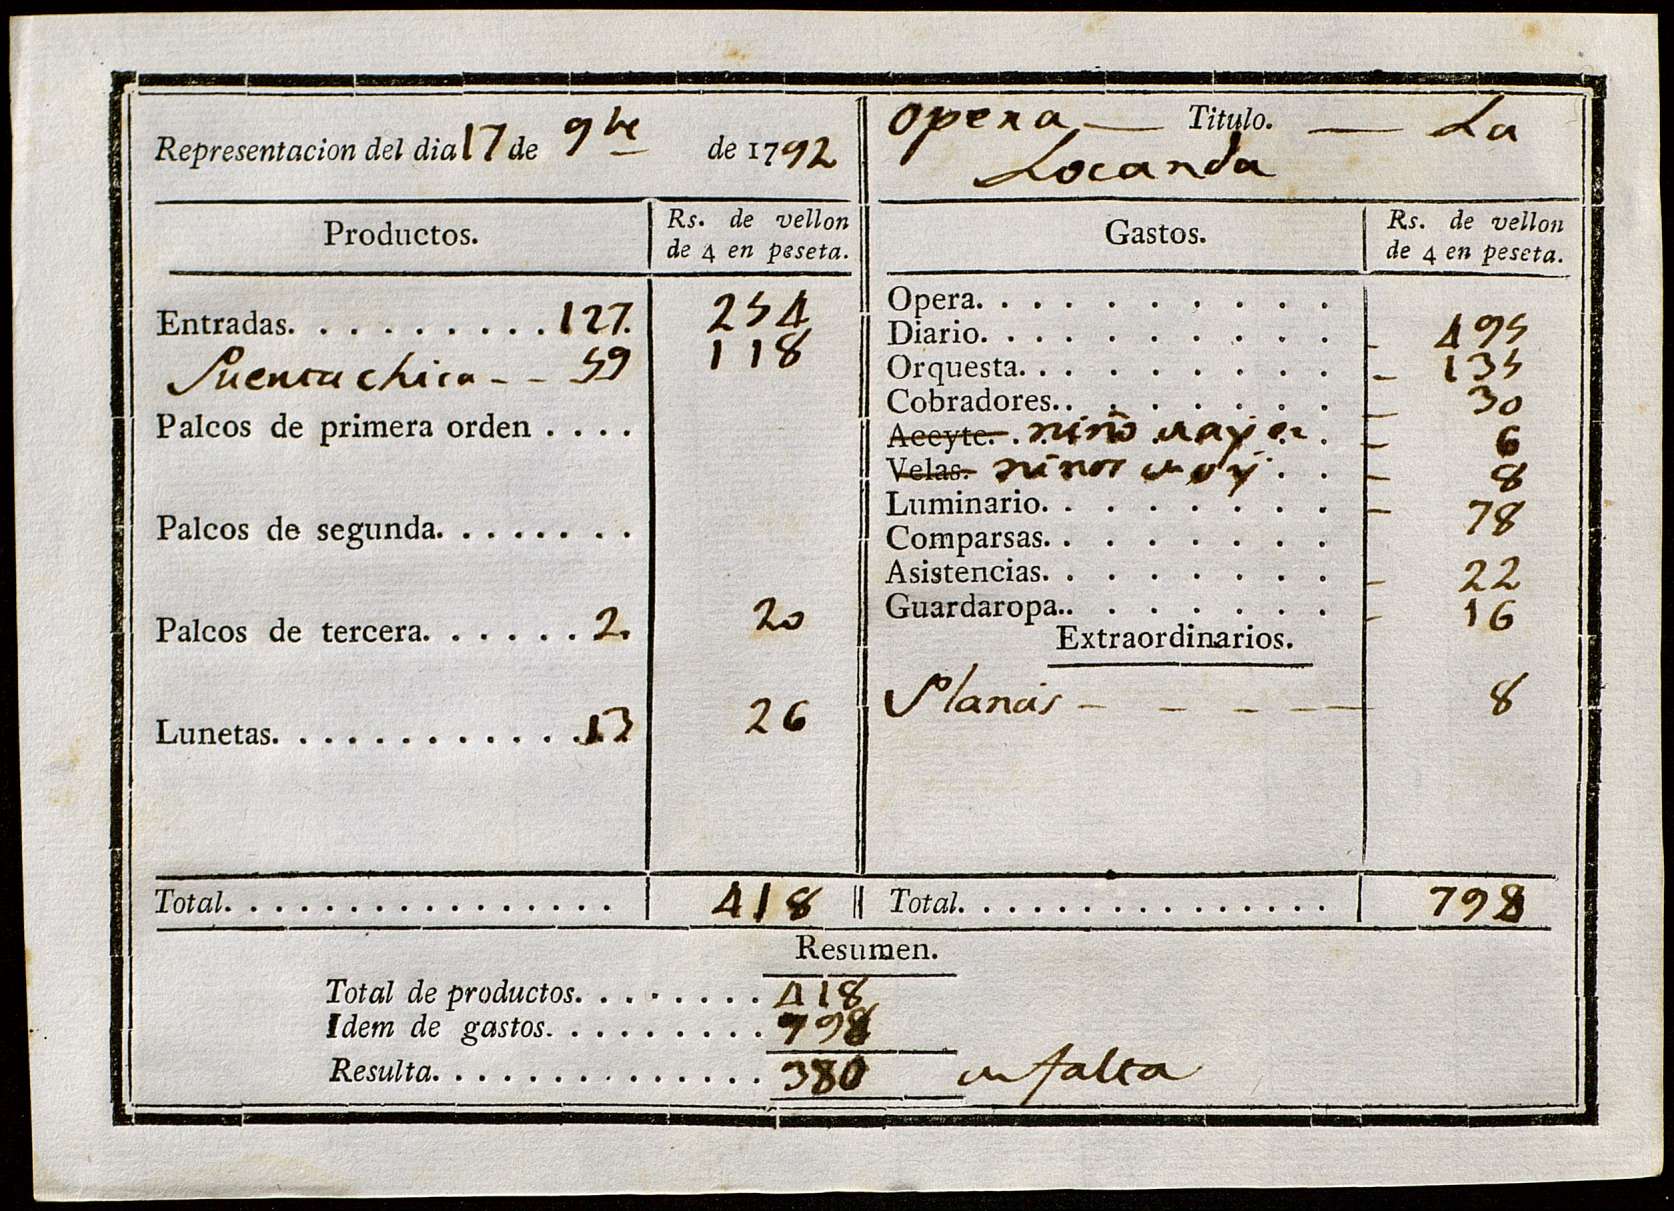 Representacion del dia 17 de 9bre de 1792
Opera — Titulo. — La
Locanda
Productos.
Rs. de vellon
de 4 en peseta.
Entradas. . . . . . . . . . 127. 254
Puerta chica - - 59 118
Palcos de primera orden . . . .
Palcos de segunda. . . . . . . .
Palcos de tercera. . . . . . 2. 20
Lunetas. . . . . . . . . . . . 13 26
Total. . . . . . . . . . . . . . . . 418
Gastos.
Rs. de vellon
de 4 en peseta.
Opera. . . . . . . . . . .
Diario. . . . . . . . . . . 495
Orquesta. . . . . . . . . 135
Cobradores.. . . . . . . 30
Aceyte. niño 6
Velas. niños 8
Luminario. . . . . . . . 78
Comparsas. . . . . . . .
Asistencias. . . . . . . . 22
Guardaropa.. . . . . . . 16
Extraordinarios.
8
Total. . . . . . . . . . . . . . . 798
Resumen.
Total de productos. . . . . . . . 418
Idem de gastos. . . . . . . . . 798
Resulta. . . . . . . . . . . . . . 380 en falta